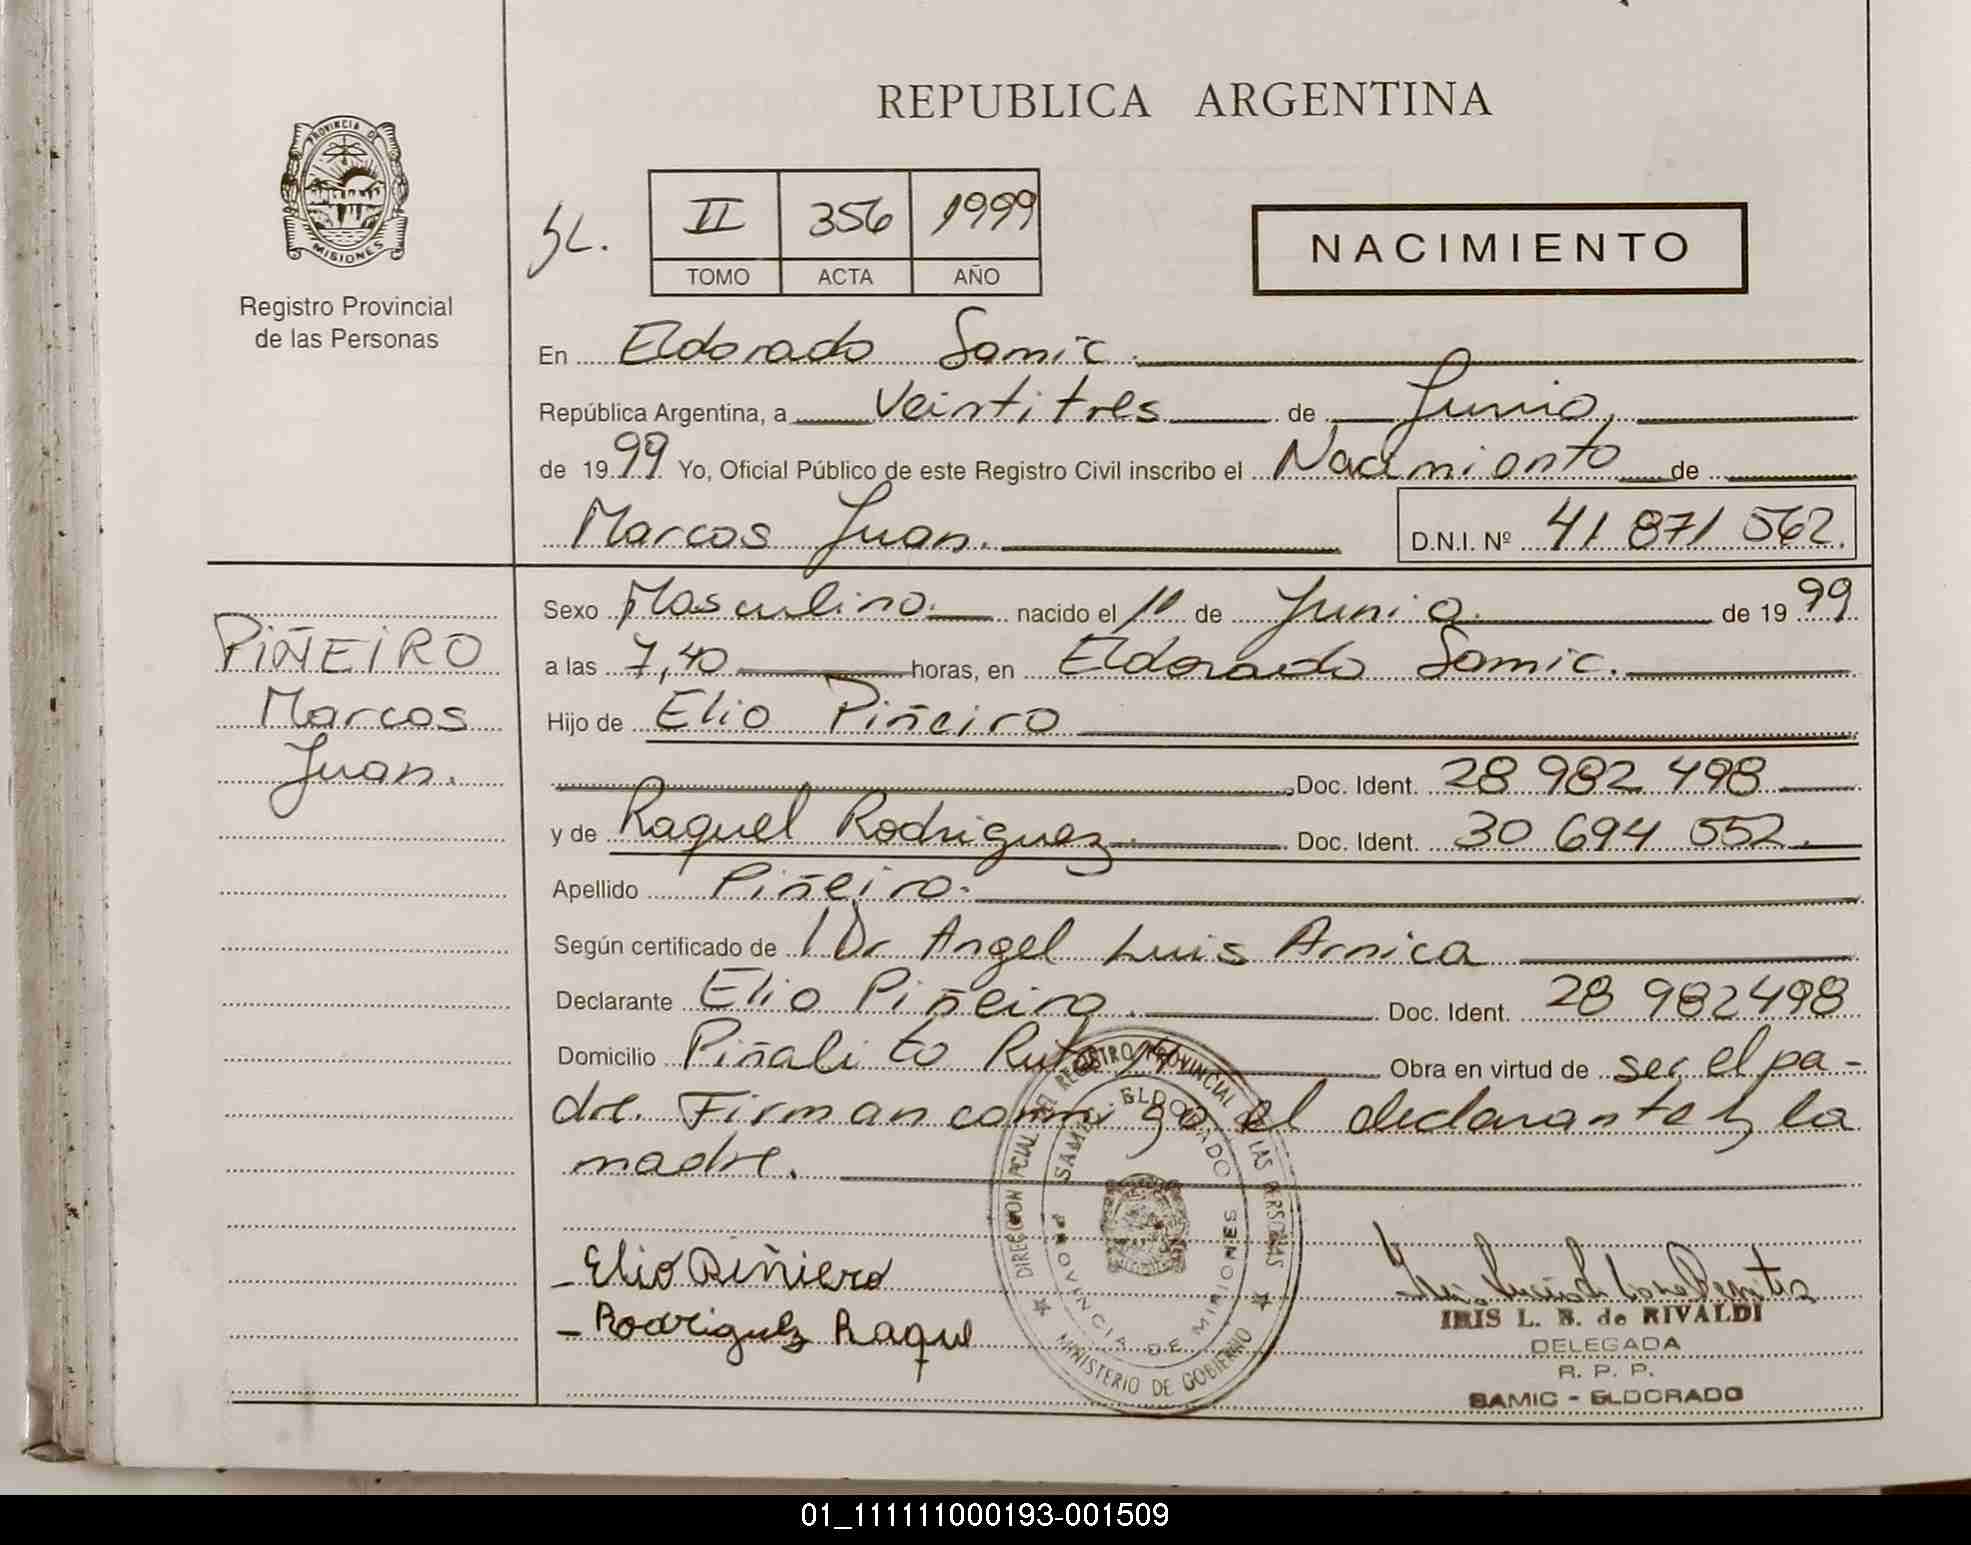 REPUBLICA ARGENTINA
PROVINCIA DE
MISIONES
Registro Provincial
de las Personas
II 356 1999
TOMO ACTA AÑO
NACIMIENTO
En Eldorado Samic.
República Argentina, a Veintitres de Junio,
de 1999 Yo, Oficial Público de este Registro Civil inscribo el Nacimiento de
Marcos Juan. D.N.I. Nº 41 871 562.
PIÑEIRO
Marcos
Juan.
Sexo Masculino. nacido el 1º de Junio. de 1999
a las 7,40 horas, en Eldorado Samic.
Hijo de Elio Piñeiro
Doc. Ident. 28 982 498
y de Raquel Rodriguez. Doc. Ident. 30 694 552.
Apellido Piñeiro.
Según certificado de Dr Angel Luis Arnica
Declarante Elio Piñeiro. Doc. Ident. 28 982498
Domicilio Piñalito Ruta Obra en virtud de ser el pa-
dre. Firman conmigo el declarante y la
madre.
DIRECCION PCIAL DEL REGISTRO PROVINCIAL DE LAS PERSONAS
SAMIC ELDORADO
PROVINCIA DE MISIONES
MINISTERIO DE GOBIERNO
- Elio Piñiero
- Rodriguez Raquel
IRIS L. B. de RIVALDI
DELEGADA
R. P. P.
SAMIC - ELDORADO
01_111111000193-001509